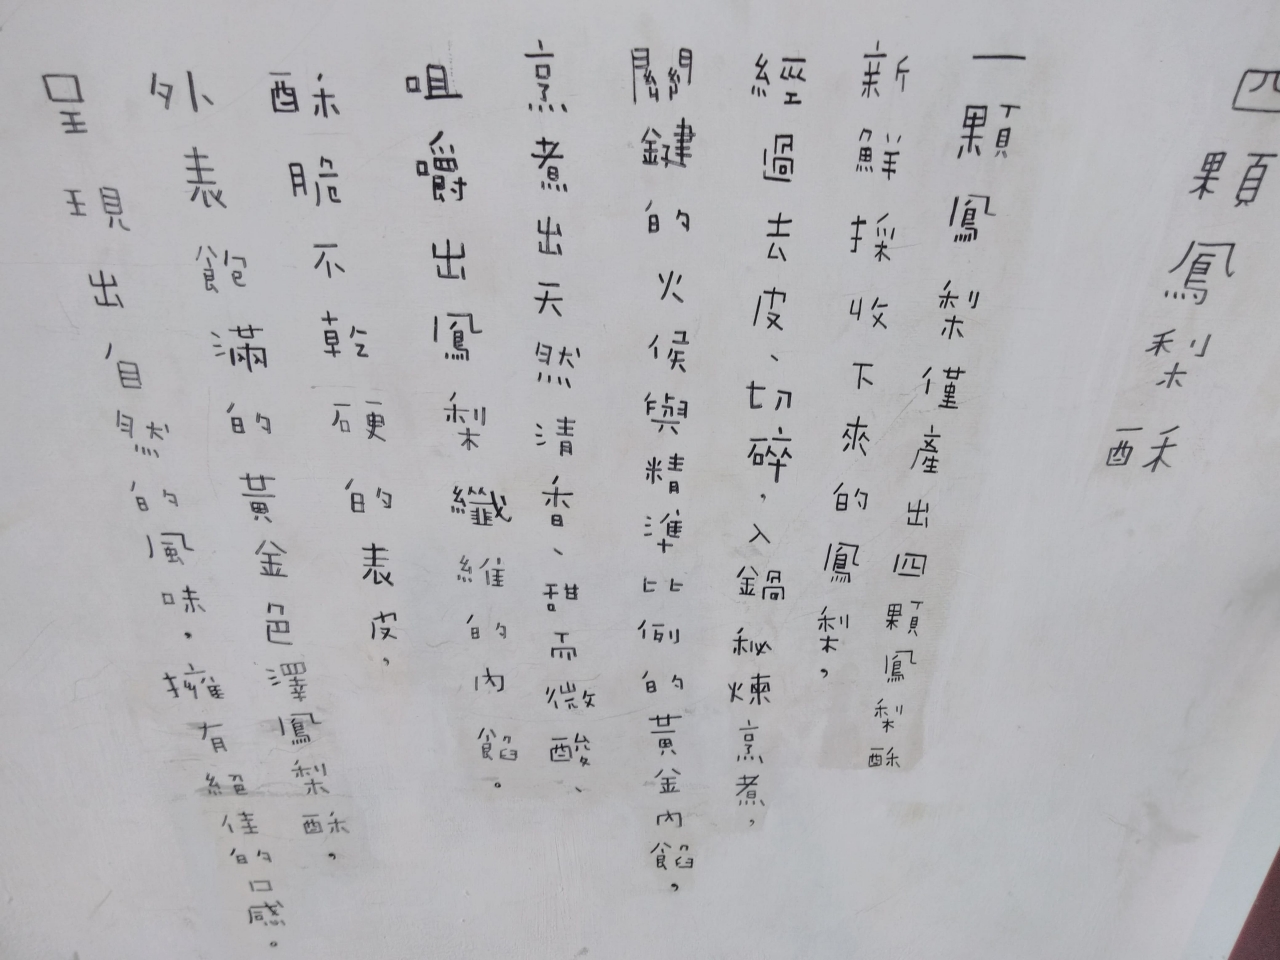 四顆鳳梨酥
一顆鳳梨僅產出四顆鳳梨酥
新鮮採收下來的鳳梨，
經過去皮、切碎，入鍋秘煉烹煮，
關鍵的火侯與精準比例的黃金內餡，
烹煮出天然清香、甜而微酸、
咀嚼出鳳梨纖維的內餡。
酥脆不乾硬的表皮，
外表飽滿的黃金色澤鳳梨酥，
呈現出自然的風味，擁有絕佳的口感。